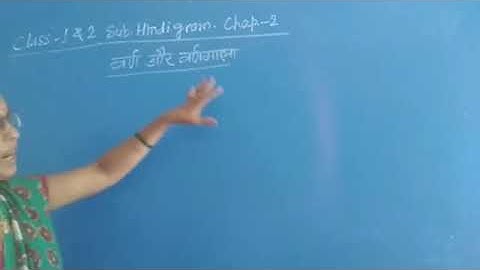 Class:-1 & 2 Sub. Hindi gram. Chap-2
वर्ण और वर्णमाला